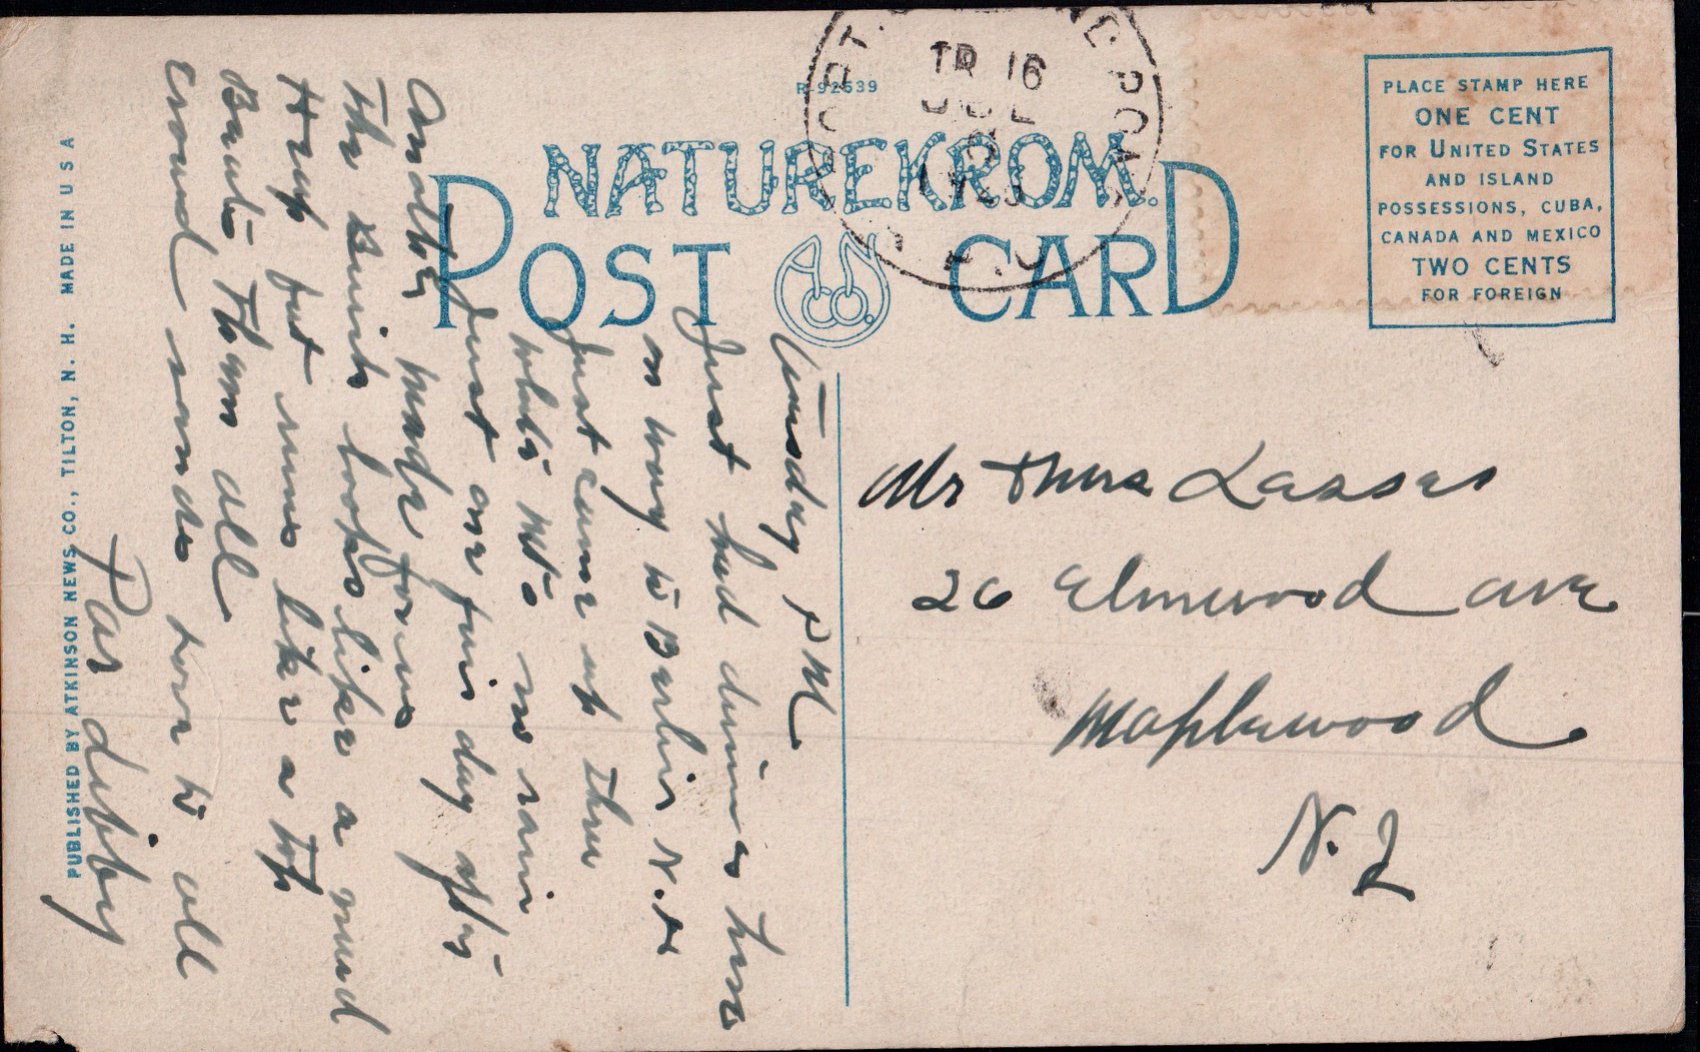 R-92539
TR 16
NATUREKROM.
POST CARD
A N Co.
PLACE STAMP HERE
ONE CENT
FOR UNITED STATES
AND ISLAND
POSSESSIONS, CUBA,
CANADA AND MEXICO
TWO CENTS
FOR FOREIGN
Tuesday PM
Just had dinner here
on way to Berlin N.H
Just came up thru
white Mts no rain
Just one fine day after
another made
The Buick looks like a mud
Heap but runs like a Top
Beats Them all
around roads love to all
Mr Thos Lasser
26 Elmwood ave
Maplewood
N. J
PUBLISHED BY ATKINSON NEWS CO., TILTON, N. H. MADE IN U S A